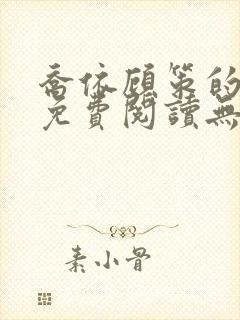 喬依顧策的
免費閱讀無
素小骨